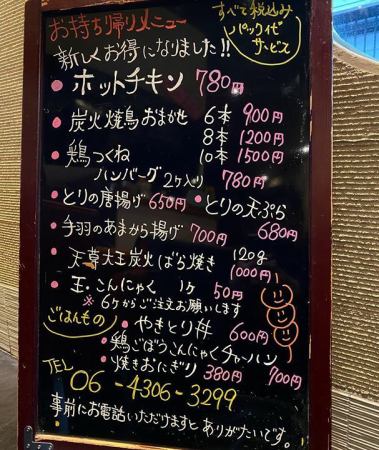 お持ち帰りメニュー
すべて税込み
パック代
サービス
新しくお得になりました!!
・ホットチキン 780円
・炭火焼鳥おまかせ 6本 900円
8本 1200円
10本 1500円
・鶏つくね
ハンバーグ 2ケ入り 780円
・とりの唐揚げ 650円
・とりの天ぷら
680円
・手羽のあまから揚げ 700円
・天草大王炭火ばら焼き 120g
1000円
・玉こんにゃく 1ケ 50円
※6ケからご注文お願いします
ごはんもの
・やきとり丼 600円
・鶏ごぼうこんにゃくチャーハン
700円
・焼きおにぎり 380円
TEL
06-4306-3299
事前にお電話いただけますとありがたいです。